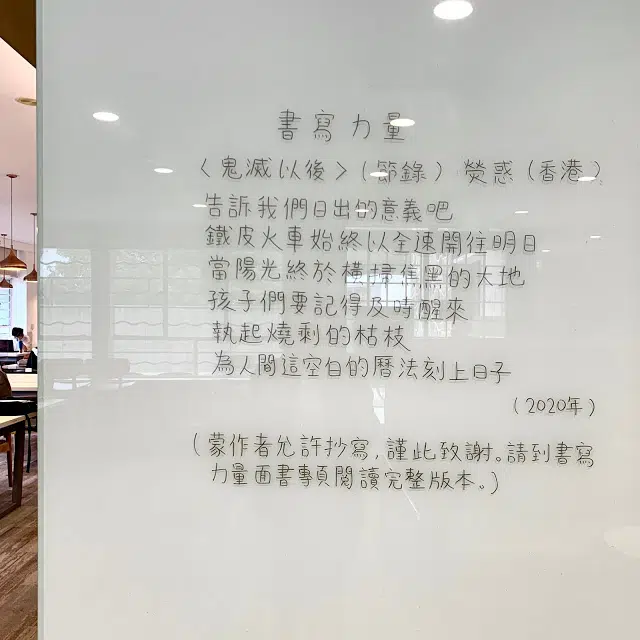 書寫力量
〈鬼滅以後〉(節錄) 熒惑 (香港)
告訴我們日出的意義吧
鐵皮火車始終以全速開往明日
當陽光終於橫掃焦黑的大地
孩子們要記得及時醒來
執起燒剩的枯枝
為人間這空白的曆法刻上日子
(2020年)
(蒙作者允許抄寫,謹此致謝。請到書寫
力量面書專頁閱讀完整版本。)